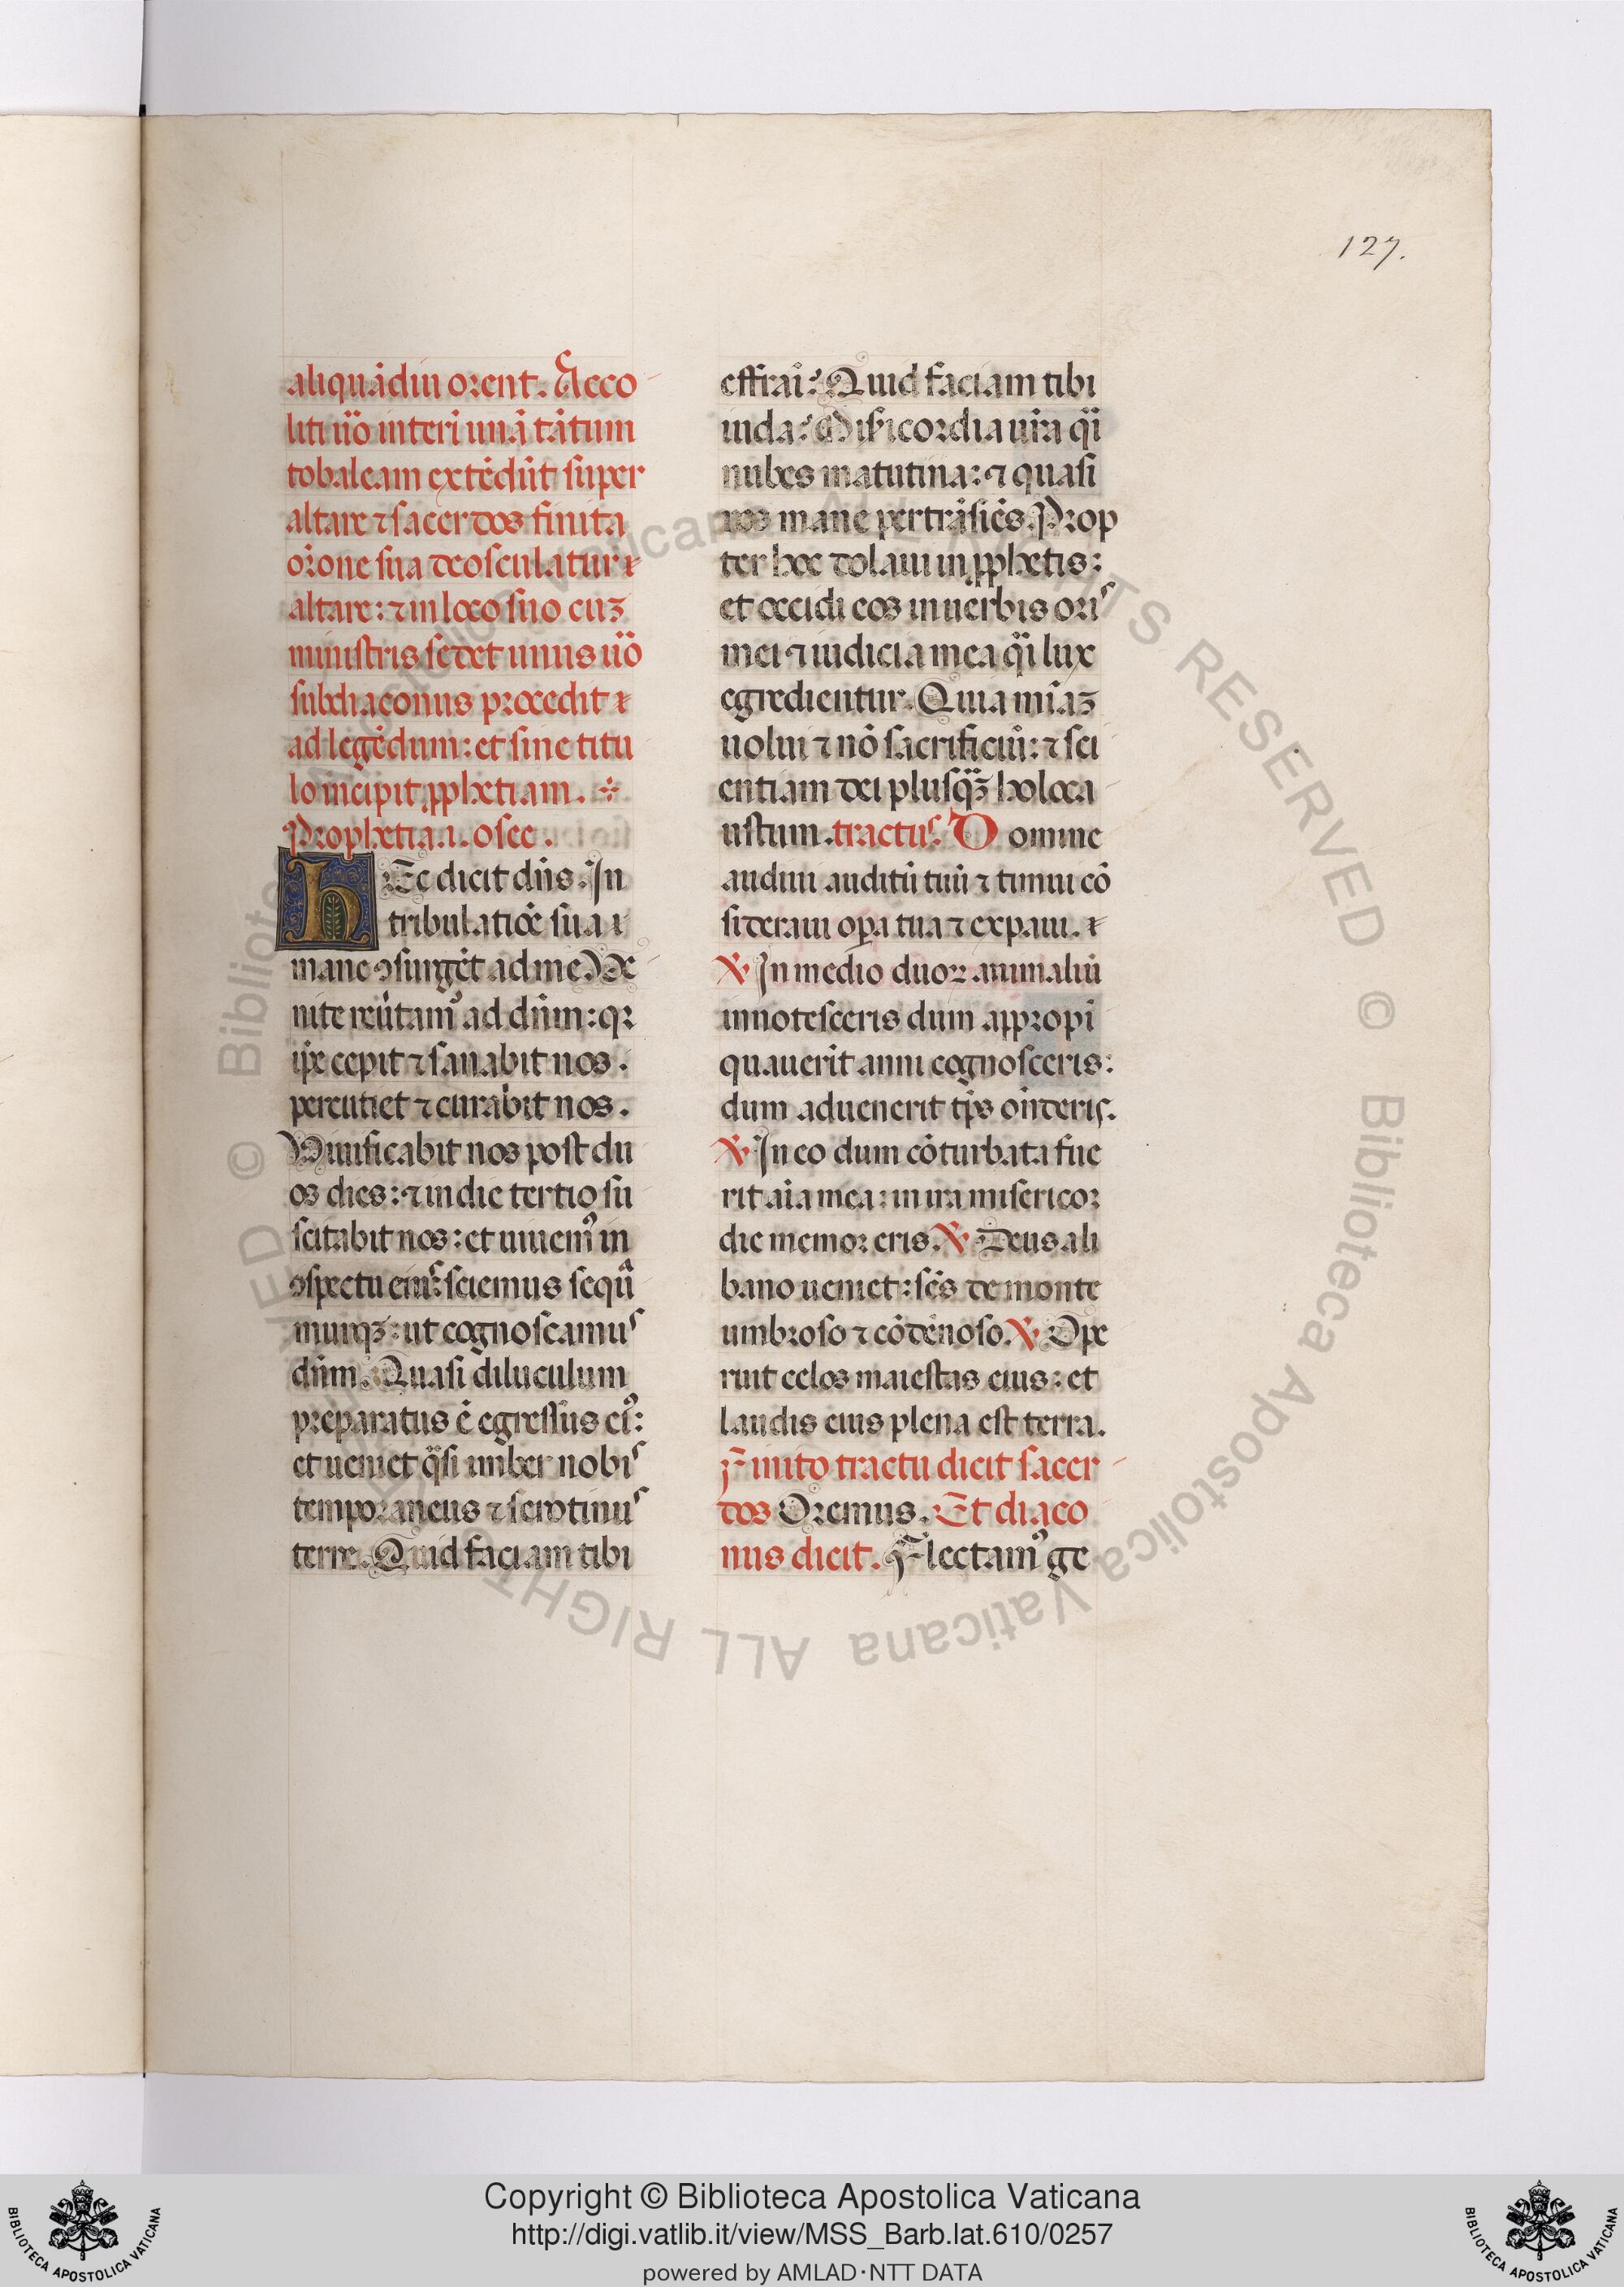 127.
aliquādiu orent. Acco
liti ūo interī unā tātum
tobaleam extēdūt super
altare ⁊ sacerdos finita
orōne sua deosculatur
altare: ⁊ in loco suo cuꝫ
ministris sedet unus ūo
subdiaconus procedit
ad legēdum: et sine titu
lo incipit ꝓphetiam.
Prophetia .i. osee.
HEc dicit dn̄s. In
tribulatiōe sua
mane ꝯsurgēt ad me. Ve
nite reūtamꝰ ad dn̄m: qꝛ
ip̄e cepit ⁊ sanabit nos.
percutiet ⁊ curabit nos.
Viuificabit nos post du
os dies: ⁊ in die tertio su
scitabit nos: et uiuemꝰ in
ꝯspectu eius: sciemus sequē
murqꝫ: ut cognoscamus
dn̄m. Quasi diluculum
preparatus ē egressus eiꝰ:
et ueniet q̈si imber nobis
temporaneus ⁊ serotinus
terre. Quid faciam tibi
effraī: Quid faciam tibi
iuda: Mis̄icordia ur̄a q̈i
nubes matutina: ⁊ quasi
ros mane pertrāsiēs. Prop
ter hoc dolaui in ꝓphetis:
et occidi eos in uerbis oris
mei ⁊ iudicia mea q̈i lux
egredientur. Quia mīaꝫ
uolui ⁊ nō sacrificiū: ⁊ sci
entiam dei plusq̈ꝫ holoca
ustum. tractus. Domine
audiui auditū tuū ⁊ timui cō
sideraui oꝑa tua ⁊ expaui.
℣ In medio duoꝝ animaliū
innotesceris dum appropī
quauerīt anni cognosceris:
dum aduenerit tp̄s on̄deris.
℣ In eo dum cōturbata fue
rit aīa mea: in ira misericor
die memor eris. ℣ Deus a li
bano ueniet: sc̄s de monte
umbroso ⁊ cōdēnoso. ℣ Ope
ruit celos maiestas eius: et
laudis eius plena est terra.
Finito tractu dicit sacer
dos Oremus. Et diaco
nus dicit. Flectamꝰ ge
© Biblioteca Apostolica Vaticana ALL RIGHTS RESERVED © Biblioteca Apostolica Vaticana ALL RIGHTS RESERVED
Copyright © Biblioteca Apostolica Vaticana
http://digi.vatlib.it/view/MSS_Barb.lat.610/0257
powered by AMLAD·NTT DATA
BIBLIOTECA APOSTOLICA VATICANA
BIBLIOTECA APOSTOLICA VATICANA